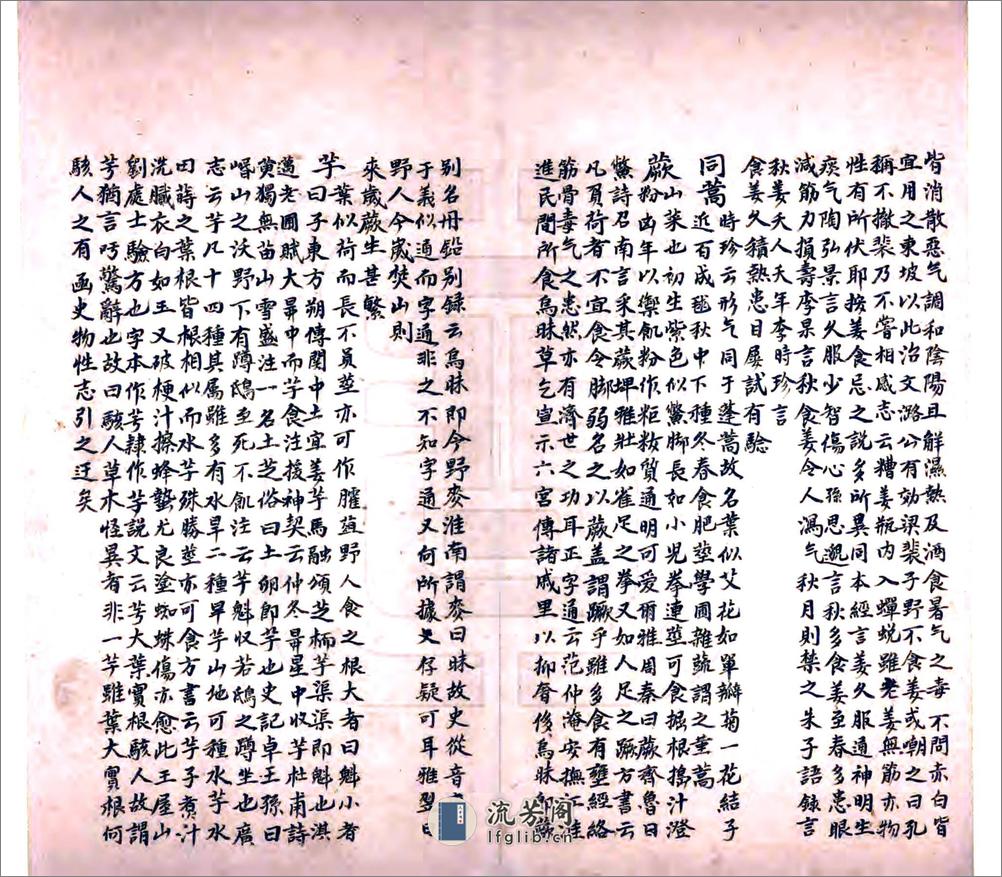 皆消散惡气調和陰陽且解濕熱及酒食暑气之毒不問赤白皆
宜用之東坡以此治文潞公有効梁裴子野不食姜或嘲之曰孔
稱不撤裴乃不嘗相感志云糟姜瓶内入蟬蜕雖老姜無筋亦物
性有所伏耶按姜食忌之説多所異同本經言姜久服通神明生
痰气陶弘景言久服少智傷心孫思邈言秋多食姜至春多患眼
減筋力損壽李杲言秋食姜令人瀉气秋月則禁之朱子語錄言
秋姜夭人天年李時珍言
食姜久積熱患目屡試有驗
同蒿近百成毬秋中下種冬春食肥莖學圃雜疏謂之童蒿
時珍云形气同于蓬蒿故名葉似艾花如單瓣菊一花結子
蕨山菜也初生紫色似鱉脚長如小児拳連莖可食掘根搗汁澄
粉凶年以禦飢粉作粔籹質通明可愛爾雅周秦曰蕨齊魯曰
虌詩召南言采其蕨埤雅壯如雀足之拳又如人足之蹶方書云
凡負荷者不宜食令脚弱名之以蕨盖謂蹶乎雖多食有壅經絡
筋骨毒气之患然亦有濟世之功耳正字通云范仲淹安撫江淮
進民間所食烏昧草乞宣示六宮傳諸戚里以抑奢後烏昧即蕨
別名丹鉛別録云烏昧即今野麥淮南謂麥曰昧故史從音
于義似通而字通非之不知字通又何所據大存疑可耳雅翌曰
野人今歲焚山則
來歲蕨生甚繁
芋葉似荷而長不員莖亦可作臛葅野人食之根大者曰魁小者
曰子東方朔傳関中土宜姜芋馬融頌芝栭芋渠渠即魁也淇
邁老圃賦大昴中而芋食注援神契云仲冬昴星中收芋杜甫詩
黄獨無苗山雪盛注一名土芝俗曰土卵即芋也史記卓王孫曰
㟭山之沃野下有蹲鴟至死不飢注云芋魁収若鴟之蹲坐也廣
志云芋凡十四種其属雖多有水旱二種旱芋山地可種水芋水
田蒔之葉根皆相似而水芋殊勝莖亦可食方書云芋子煮汁
洗臟衣白如玉又破梗汁搽蜂螫尤良塗蜘蛛傷亦愈此王屋山
劉處士驗方也字本作芌隷作芋説文云芌大葉實根駭人故謂
芌猶言吁驚辭也故曰駭人草木怪異者非一芋雖葉大實根何
駭人之有函史物性志引之迂矣
流芳阁
lfglib.com